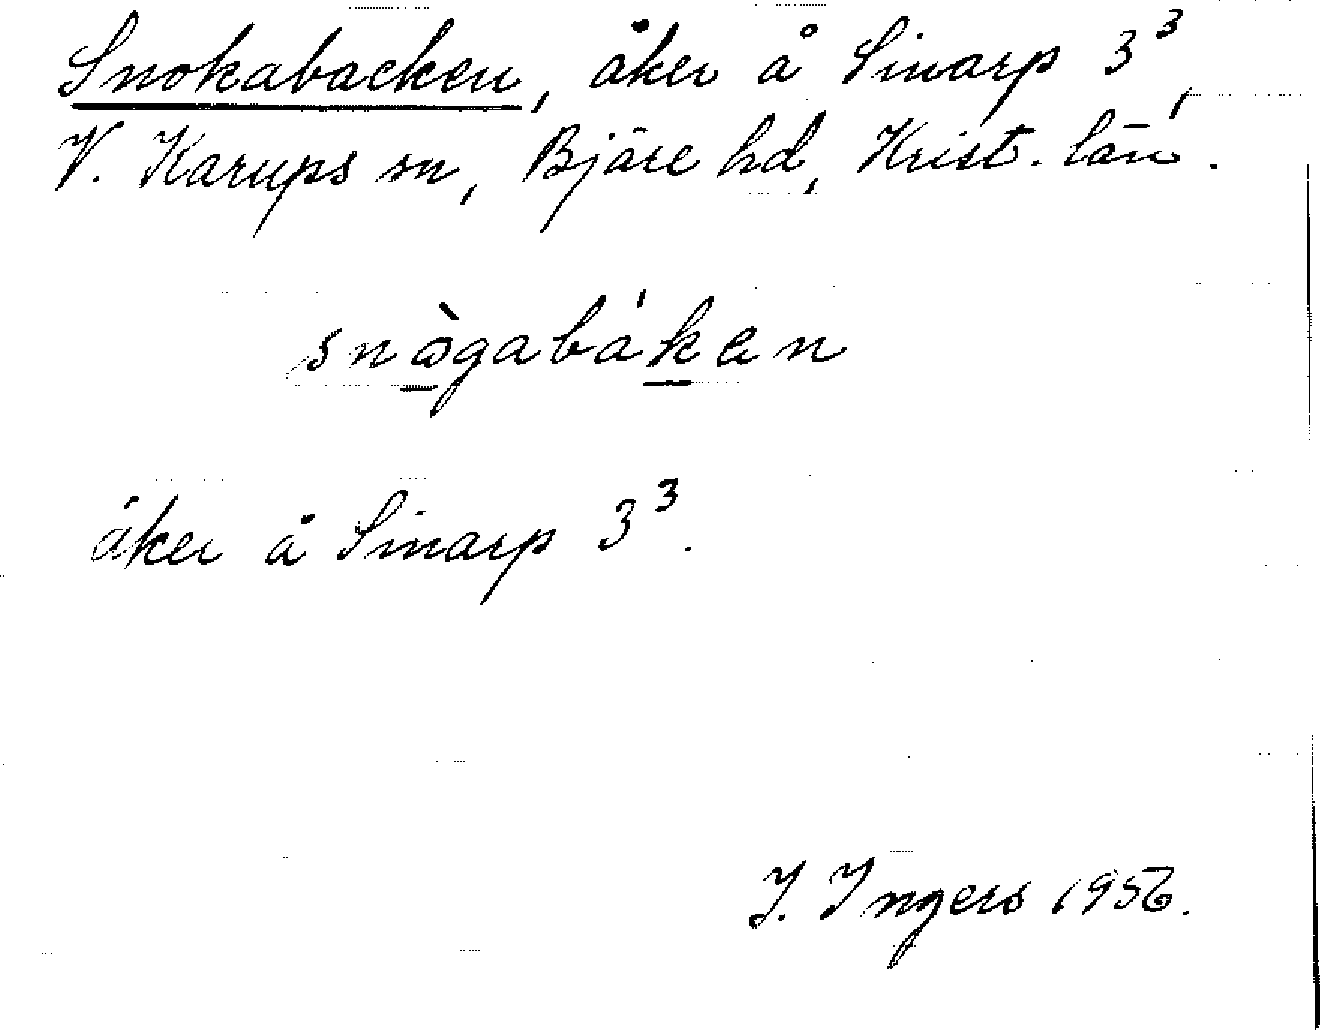 Snokabacken, åker å Sinarp 3³,
V. Karups sn, Bjäre hd, Krist. län.
snògabáken
åker å Sinarp 3³.
I. Ingers 1956.